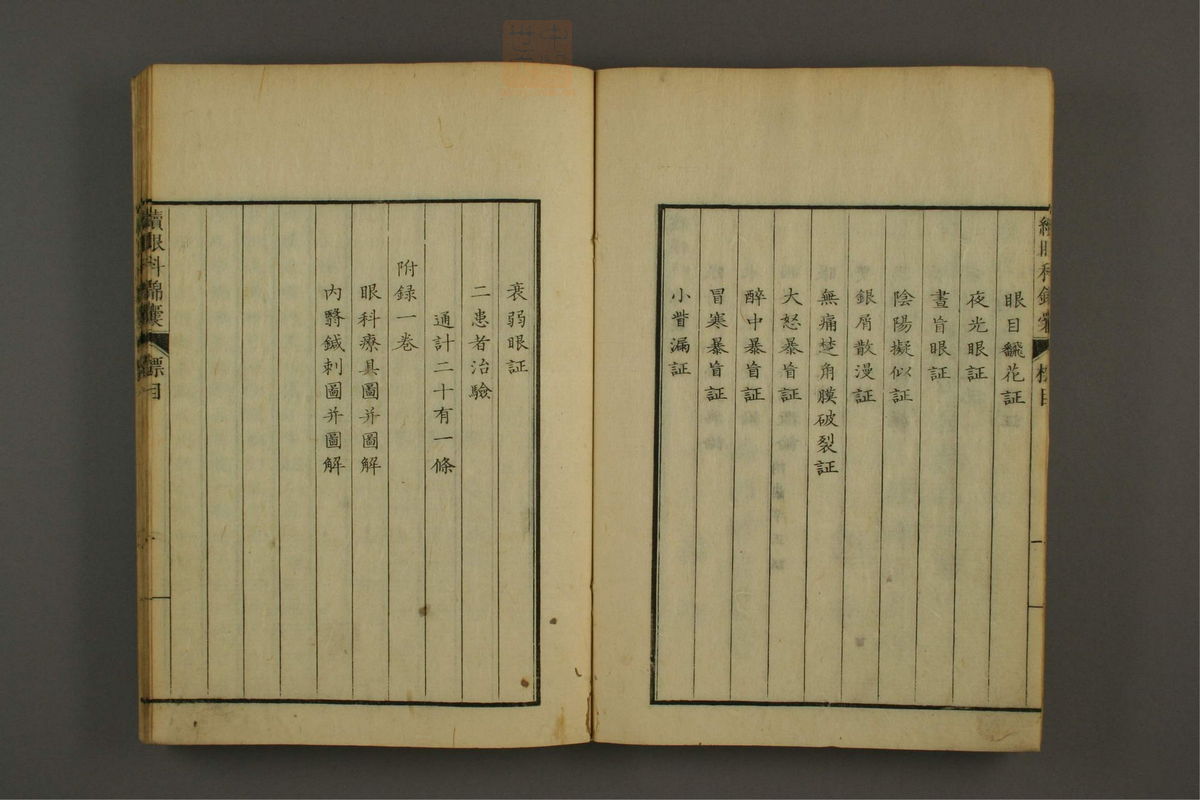 眼目飜花証
夜光眼証
晝盲眼証
陰陽擬似証
銀屑散漫証
無痛楚角膜破裂証
大怒暴盲証
醉中暴盲証
冒寒暴盲証
小眥漏証
衰弱眼証
二患者治驗
通計二十有一條
附録一巻
眼科療具圖并圖解
内翳鍼刺圖并圖解
續眼科錦囊
標目